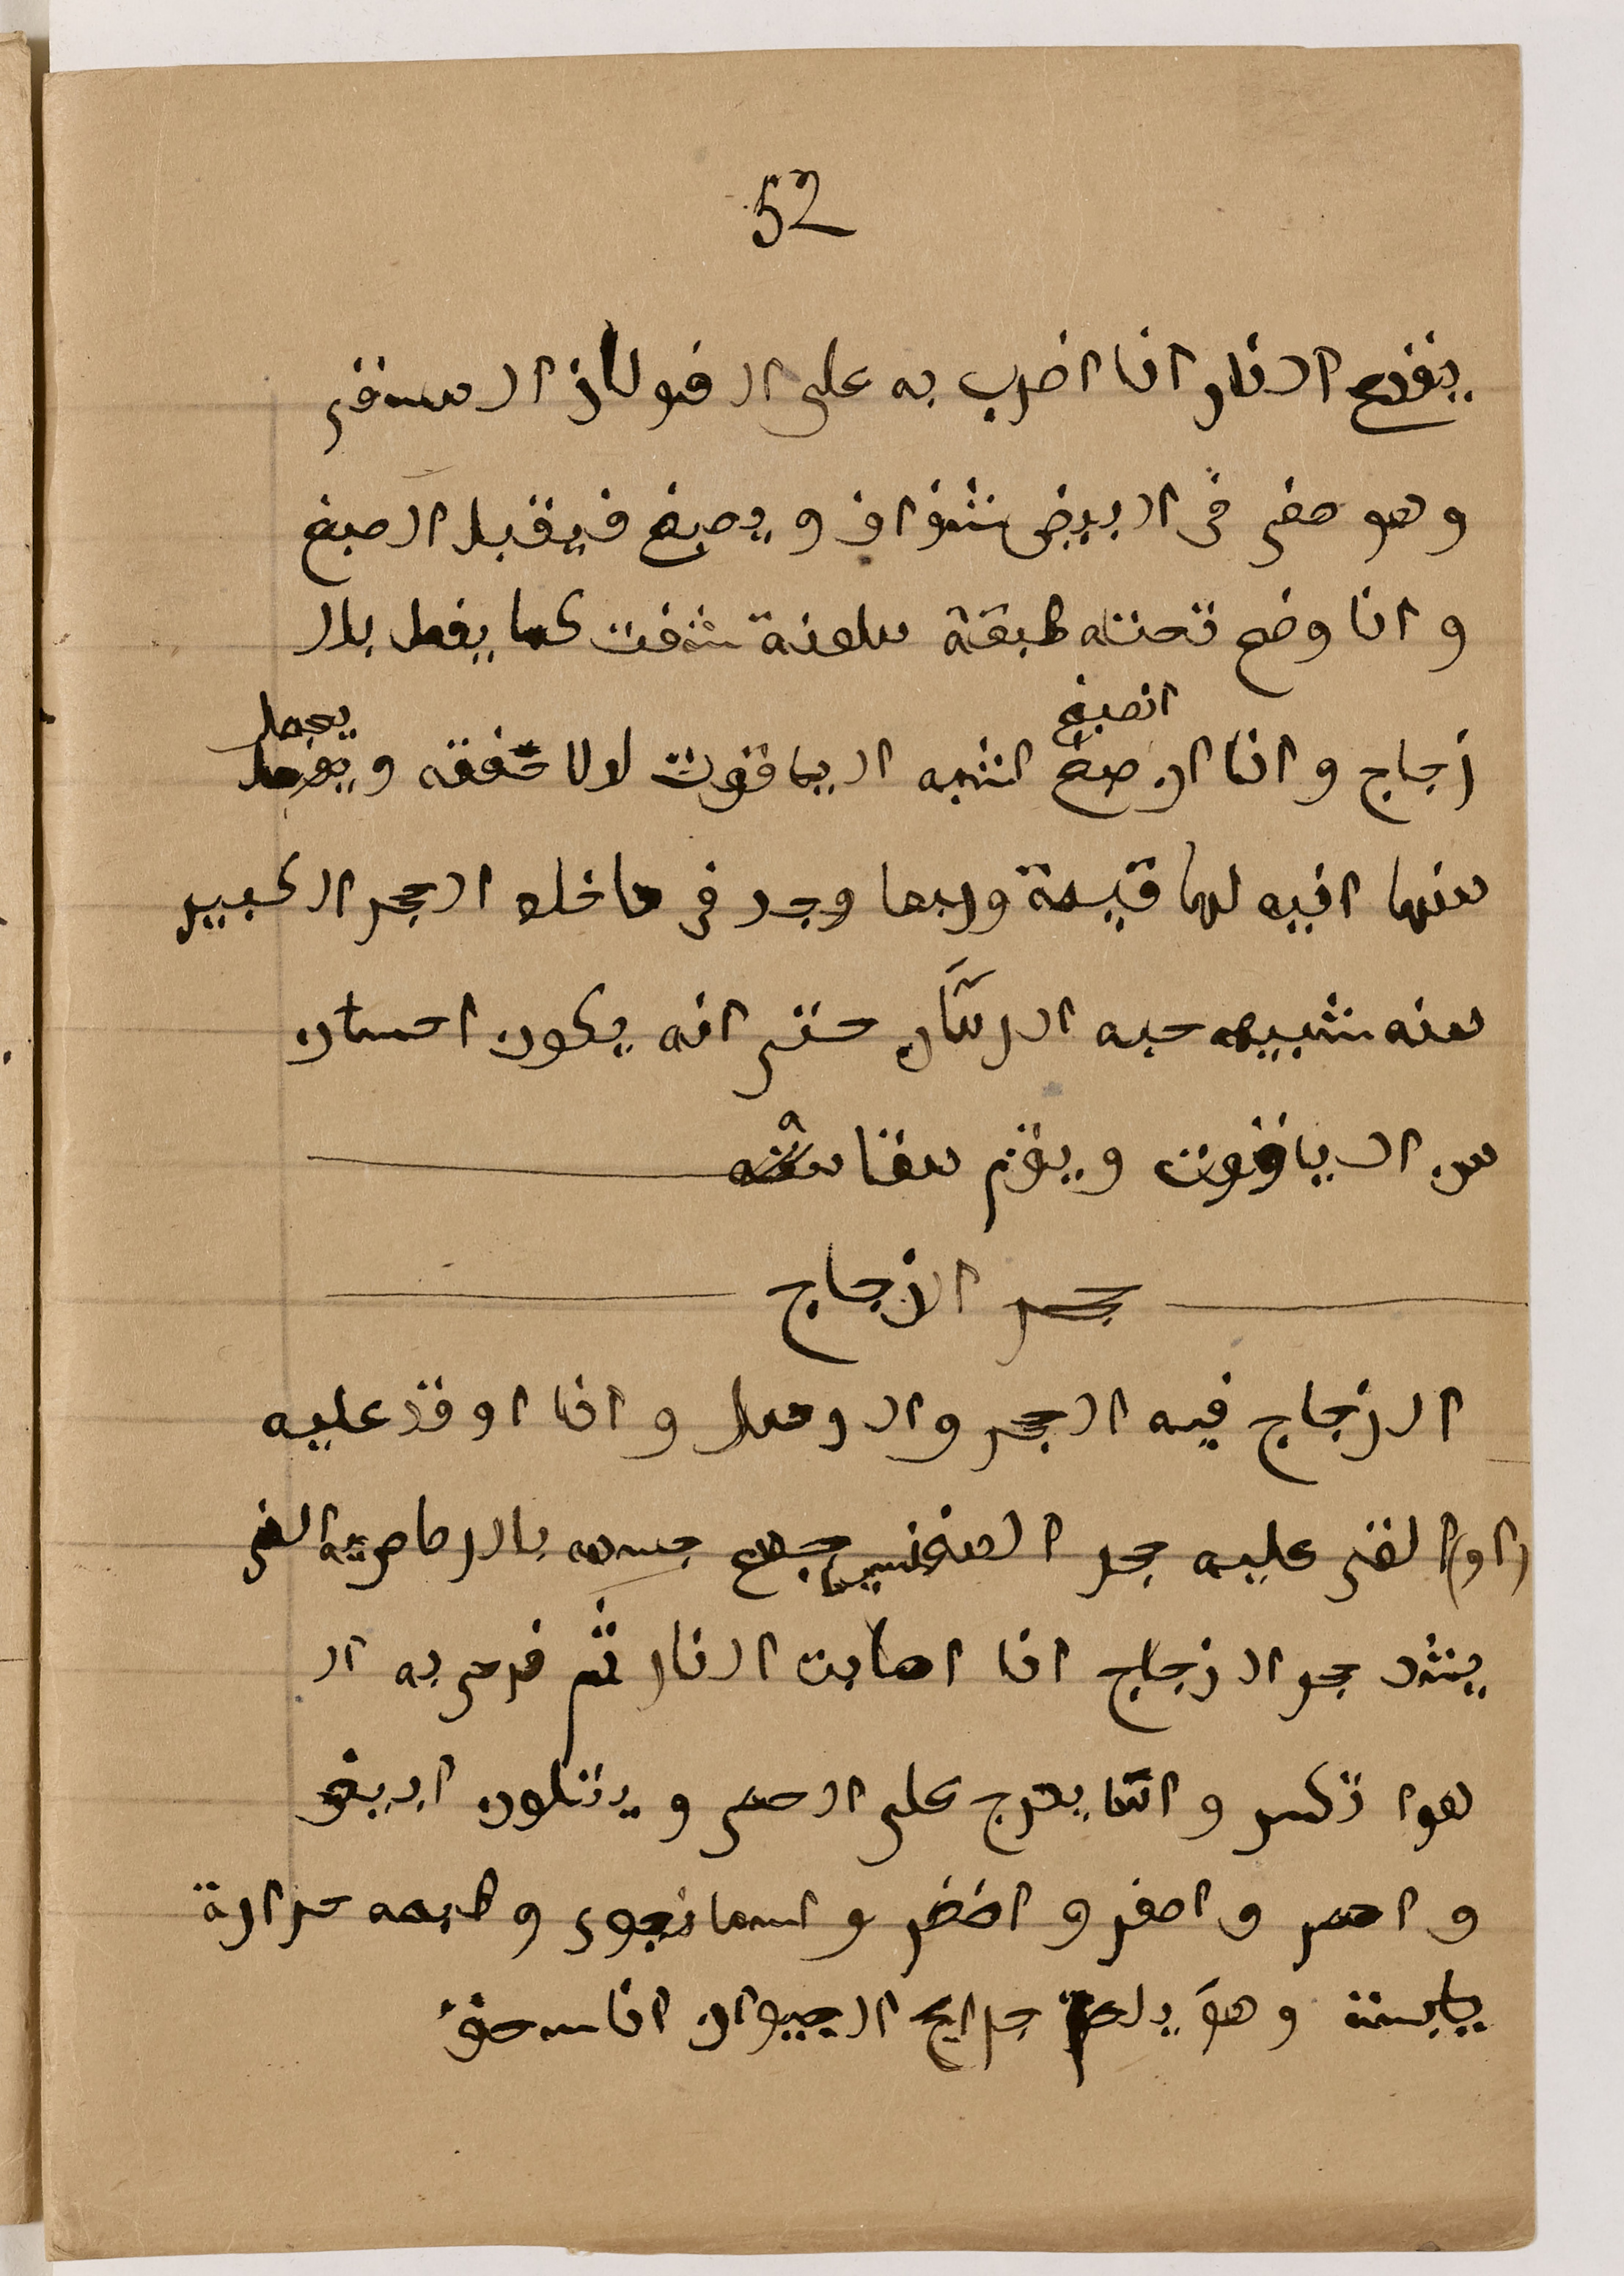 52
ينقدح النار اذا اضرب به على الفولاذ السقى
وهو صفى فى البيض شفاف ويصبغ فيقبل الصبغ
واذا وضع تحته طبقة ملونة شفت كما يفعل بال
انصبغ يجعل
زجاج واذا انصبغ اشبه الياقوت لولا خفته و
منها انيه لها قيمة وربما وجد فى داخله الحجر الكبير
منه شبيه حبه الرمان حتى انه يكون احسان
من الياقوت ويقم مقامه
حجر الزجاج
الزجاج فيه الحجر والرمل واذا اوقد عليه
(او) القى عليه حجر المغنسيا جمع جسمه بالرصاصية التى
يشد حجر الزجاج اذا اصابت النار ثم فرض به ال
هوا تكسر وانما يدرج على الحمى ويتلون ابيض
واحمر واصفر واخضر واسمانجوى وطبعه حرارة
يابسة وهو يلحم جرايح الحيوان اذا سحق